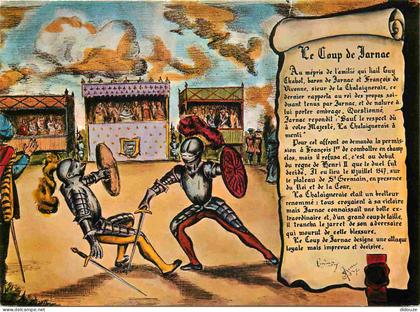 Le Coup de Jarnac
Au mépris de l'amitié qui liait Guy
Chabot, baron de Jarnac et François de
Vivonne, sieur de la Chataigneraie, ce
dernier rapporta au roi des propos soi-
disant tenus par Jarnac, et de nature à
lui porter ombrage. Questionné,
Jarnac répondit "Sauf le respect dû
à votre Majesté, La Chataigneraie à
menti".
Pour cet affront on demanda la permission
à François Ier de combattre en champ
clos, mais il refusa et, c'est au début
du règne de Henri II que le duel fut
décidé. Il eu lieu le 10 juillet 1547, sur
le plateau de St Germain, en présence
du Roi et de la Cour.
La Chataigneraie était un bretteur
renommé : tous croyaient à sa victoire
mais Jarnac connaissait une botte ex-
traordinaire et, d'un grand coup de taille,
il trancha le jarret de son adversaire
qui mourut de cette blessure.
Le Coup de Jarnac désigne une attaque
loyale mais imprévue et décisive.